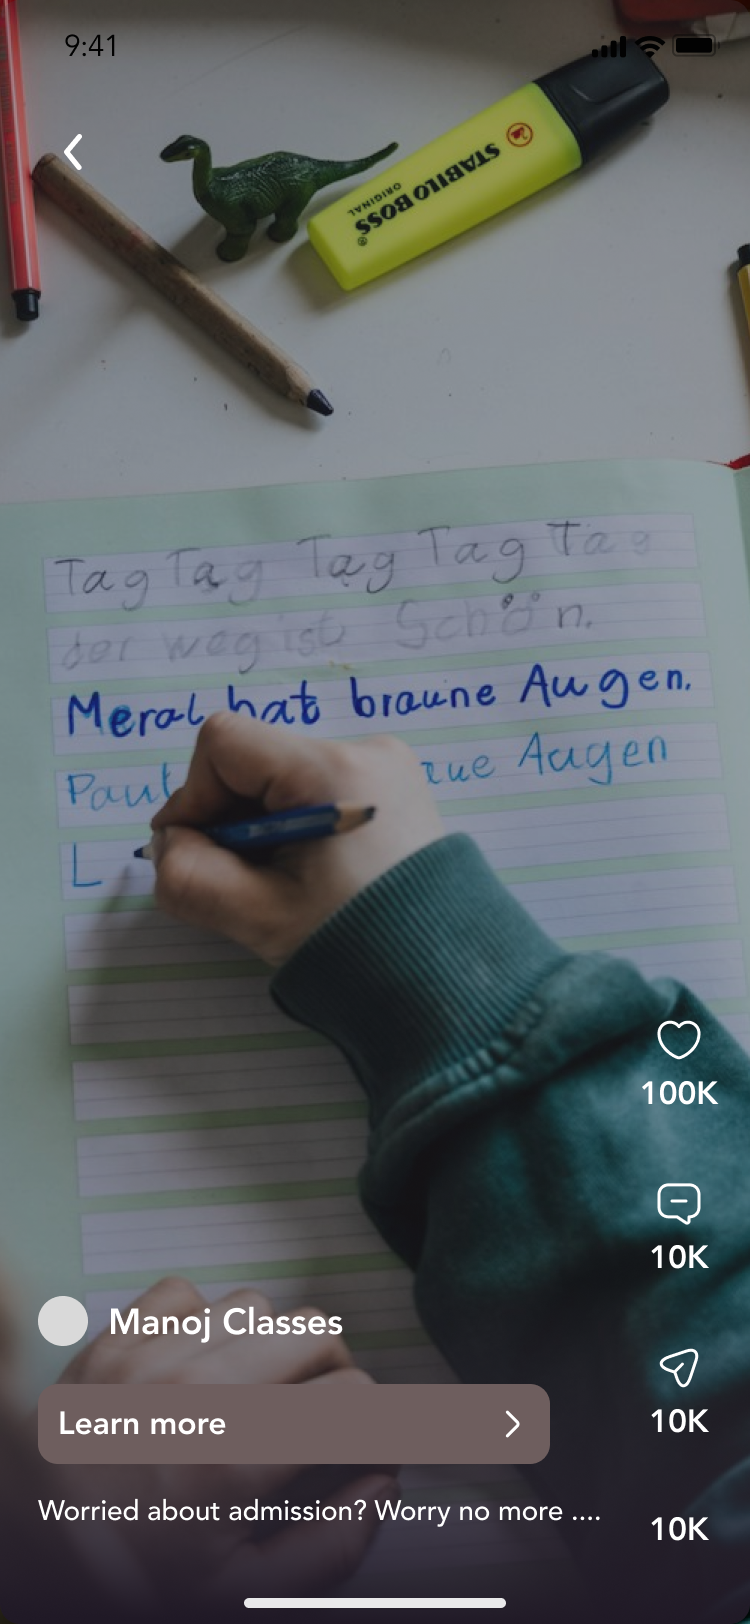 9:41
STABILO BOSS®
ORIGINAL
Tag Tag Tag Tag Tag
der weg ist Schön.
Meral hat braune Augen.
Paul aue Augen
L
100K
10K
Manoj Classes
10K
Learn more
Worried about admission? Worry no more ....
10K